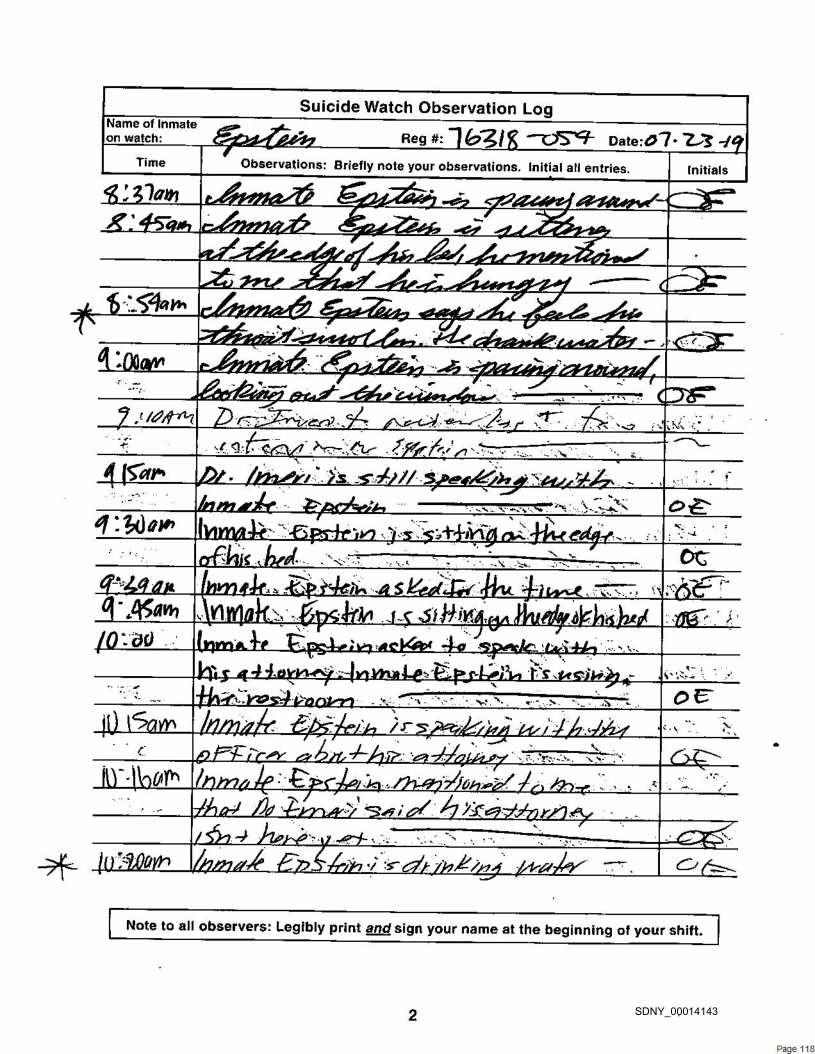 Suicide Watch Observation Log
Name of Inmate on watch: Epstein Reg #: 76318-054 Date: 07-23-19
Time Observations: Briefly note your observations. Initial all entries. Initials
8:37am Inmate Epstein is pacing around OE
8:45am Inmate Epstein is sitting
at the edge of his bed, he mentioned
to me that he is hungry OE
* 8:59am Inmate Epstein says he feels his
throat swollen. He drank water - OE
9:00am Inmate Epstein is pacing around,
looking out the window OE
9:10AM Dr.
9 15am Dr. Imeri is still speaking with
Inmate Epstein OE
9:30am Inmate Epstein is sitting on the edge
of his bed OE
Inmate Epstein asked for the time OE
9:45am Inmate Epstein is sitting on the edge of his bed OE
10:00 Inmate Epstein asked to speak with
his attorney. Inmate Epstein is using
the restroom OE
10 15am Inmate Epstein is speaking with the
officer about his attorney OE
10:16am Inmate Epstein mentioned to me
that said his attorney
isn't here yet OE
* Inmate Epstein is drinking water OE
Note to all observers: Legibly print and sign your name at the beginning of your shift.
2
SDNY_00014143
Page 118